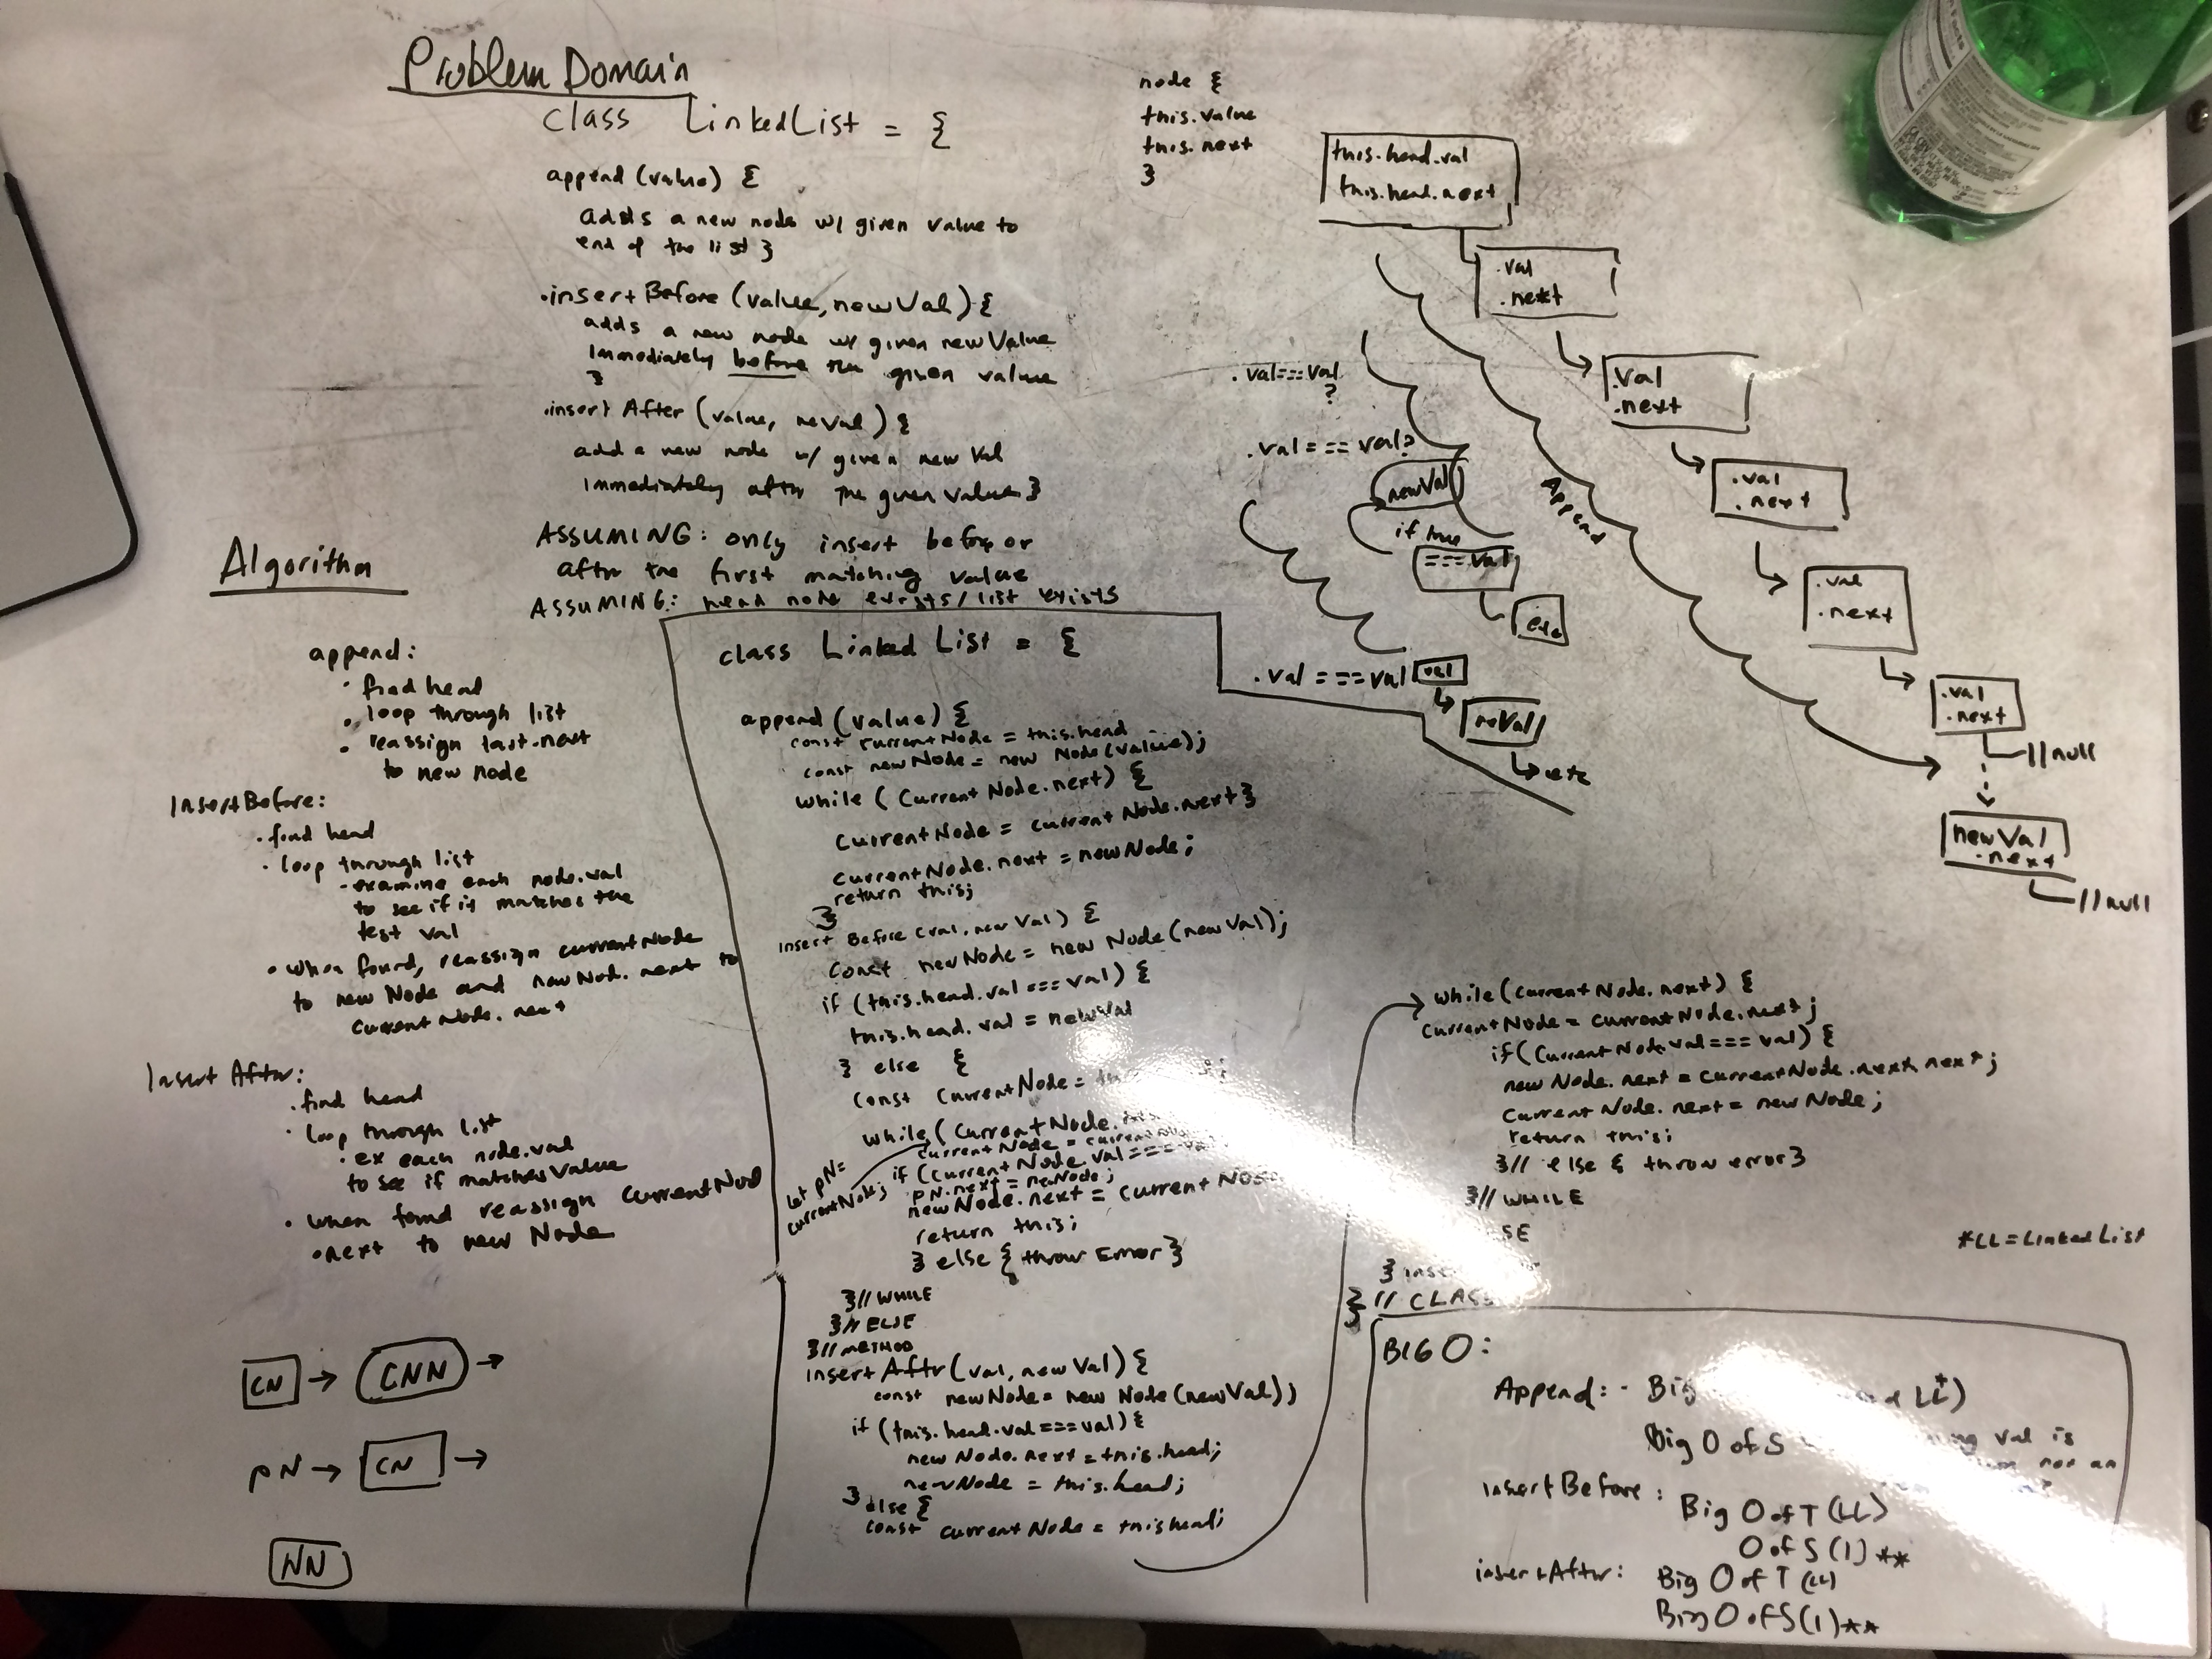 Problem Domain
class LinkedList = {
append(value) {
adds a new node w/ given value to
end of the list }
·insertBefore (value, newVal) {
adds a new node w/ given newValue
immediately before the given value
}
·insert After (value, newVal) {
add a new node w/ given new Val
immediately after the given value }
ASSUMING: only insert before or
after the first matching value
ASSUMING: head node exists/list exists
node {
this.value
this.next
}
this.head.val
this.head.next
.val
.next
.val
.next
.val
.next
.val
.next
.val
.next
//null
newVal
.next
//null
append
.val==val
?
.val===val?
newVal
if true
===val
etc
.val===val
val
nwVal
etc
Algorithm
append:
· find head
· loop through list
· reassign last.next
to new node
InsertBefore:
· find head
· loop through list
- examine each node.val
to see if it matches the
test val
· when found, reassign currentNode
to new Node and newNode.next to
current node.next
Insert After:
· find head
· loop through list
· ex each node.val
to see if matches value
· when found reassign currentNod
·next to new Node
CN → CNN →
PN → CN →
NN
class Linked List = {
append (value) {
const currentNode = this.head
const newNode = new Node(value);
while (currentNode.next) {
currentNode = currentNode.next}
currentNode.next = newNode;
return this;
}
insert Before (val, new Val) {
const newNode = new Node(newVal);
if (this.head.val === val) {
this.head.val = newVal
} else {
const currentNode =
while (currentNode.
currentNode =
let pN=
currentNode;
if (currentNode.val ===
pN.next = newNode;
newNode.next = currentNode
return this;
} else {throw error}
}//WHILE
}//ELSE
}//METHOD
insertAftr(val, newVal) {
const newNode = new Node(newVal))
if (this.head.val===val) {
newNode.next=this.head;
newNode = this.head;
} else {
const currentNode = this.head;
while(currentNode.next) {
currentNode = currentNode.next;
if(currentNode.val===val) {
newNode.next = currentNode.next.next;
currentNode.next = newNode;
return this;
}// else { throw error}
}//WHILE
SE
} inse
}// CLASS
*LL=Linked List
BIG O:
Append: - Big
LL*)
Big O of S
val is
InsertBefore: Big O of T (LL)
O of S (1)**
insertAftr: Big O of T (LL)
Big O of S(1)**